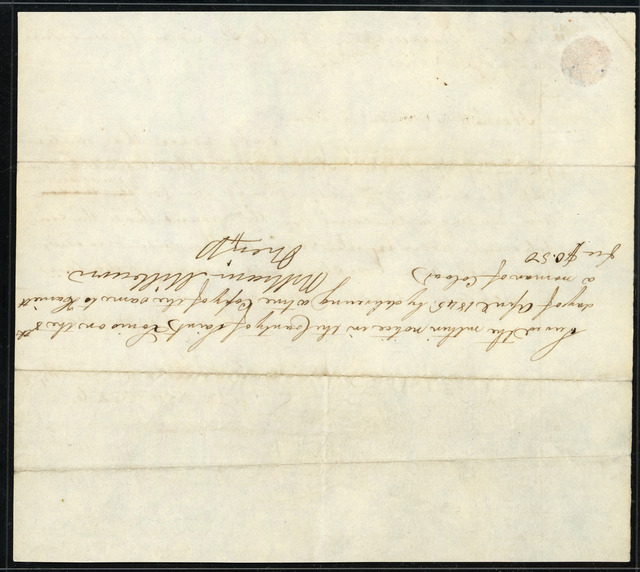 Served the within notice in the County of Saint Louis on the 8th
day of April 1845 by delivering a true Copy of the same to Harriet
a woman of Color)
William Milburn
Sheriff
fee $0.50